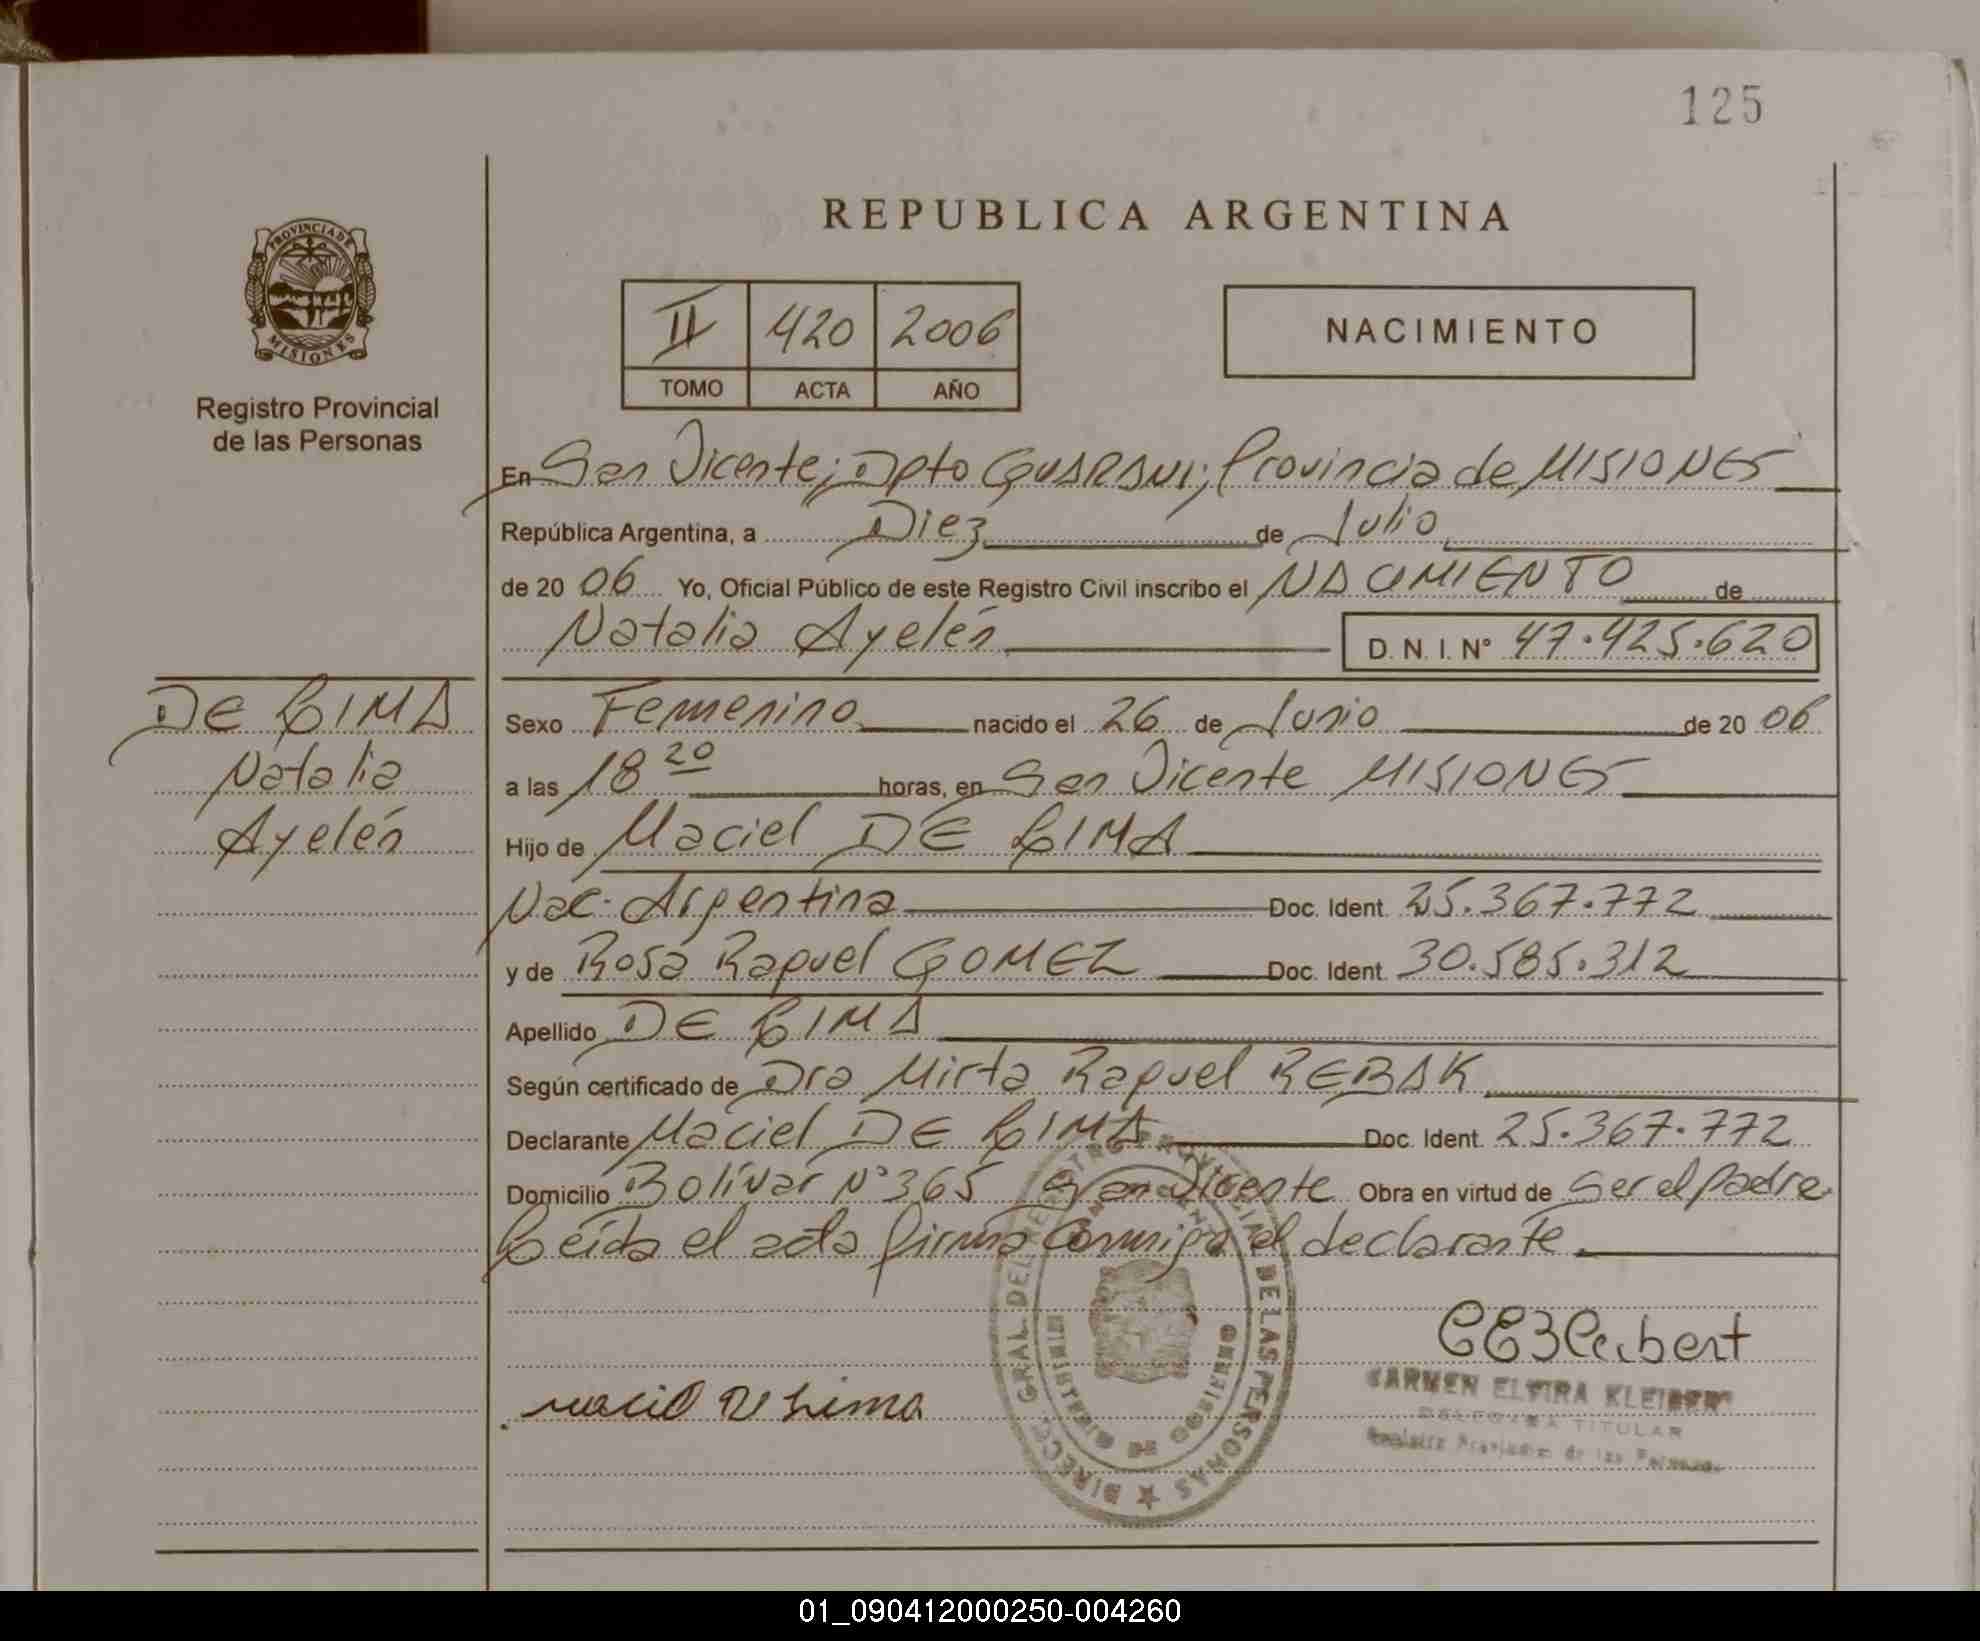 125
PROVINCIA DE
MISIONES
Registro Provincial
de las Personas
REPUBLICA ARGENTINA
II 420 2006
TOMO ACTA AÑO
NACIMIENTO
En San Vicente; Dpto GUARANI; Provincia de MISIONES
República Argentina, a Diez de Julio
de 20 06 Yo, Oficial Público de este Registro Civil inscribo el NACIMIENTO de
Natalia Ayelén D.N.I.Nº 47.425.620
DE LIMA
Natalia
Ayelén
Sexo Femenino nacido el 26 de Junio de 20 06
a las 18 20 horas, en San Vicente MISIONES
Hijo de Maciel DE LIMA
Nac. Argentina Doc. Ident. 25.367.772
y de Rosa Raquel GOMEZ Doc. Ident. 30.585.312
Apellido DE LIMA
Según certificado de Dra Mirta Raquel REBAK
Declarante Maciel DE LIMA Doc. Ident. 25.367.772
Domicilio Bolívar Nº 365 San Vicente Obra en virtud de ser el padre
Leída el acta firma conmigo el declarante
DIRECC. GRAL. DEL REGISTRO PROVINCIAL DE LAS PERSONAS
MINISTERIO DE GOBIERNO
CARMEN ELVIRA KLEIBERT
DELEGADA TITULAR
Registro Provincial de las Personas
01_090412000250-004260